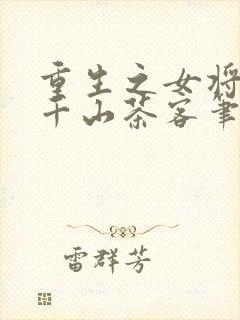 重生之女将
千山茶客笔
雷群芳